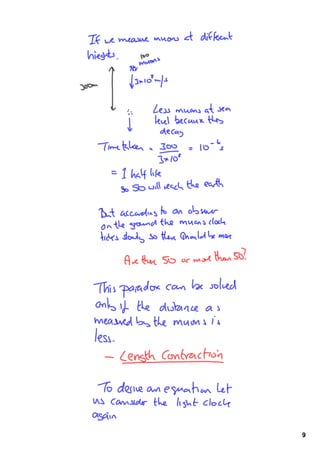 If we measure muons at different
hieghts.
100
muons
300m
3×10⁸m/s
∴ Less muons at sea
level because they
decay
Time taken = 300 / 3×10⁸ = 10⁻⁶s
= 1 half life
so 50 will reach the earth
But according to an observer
on the ground the muons clock
ticks slowly so there should be more
Are there 50 or more than 50?
This paradox can be solved
only if the distance as
measured by the muons is
less.
– Length Contraction
To derive an equation let
us consider the light clock
again
9